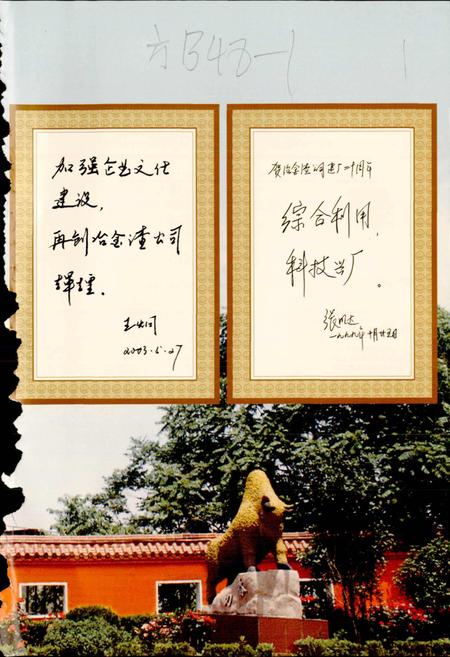 方543-1
1
加强企业文化
建设,
再创冶金渣公司
辉煌.
2003.5.27
贺冶金渣公司建厂二十周年
综合利用,
科技兴厂。
张明达
一九九九年十月廿五日